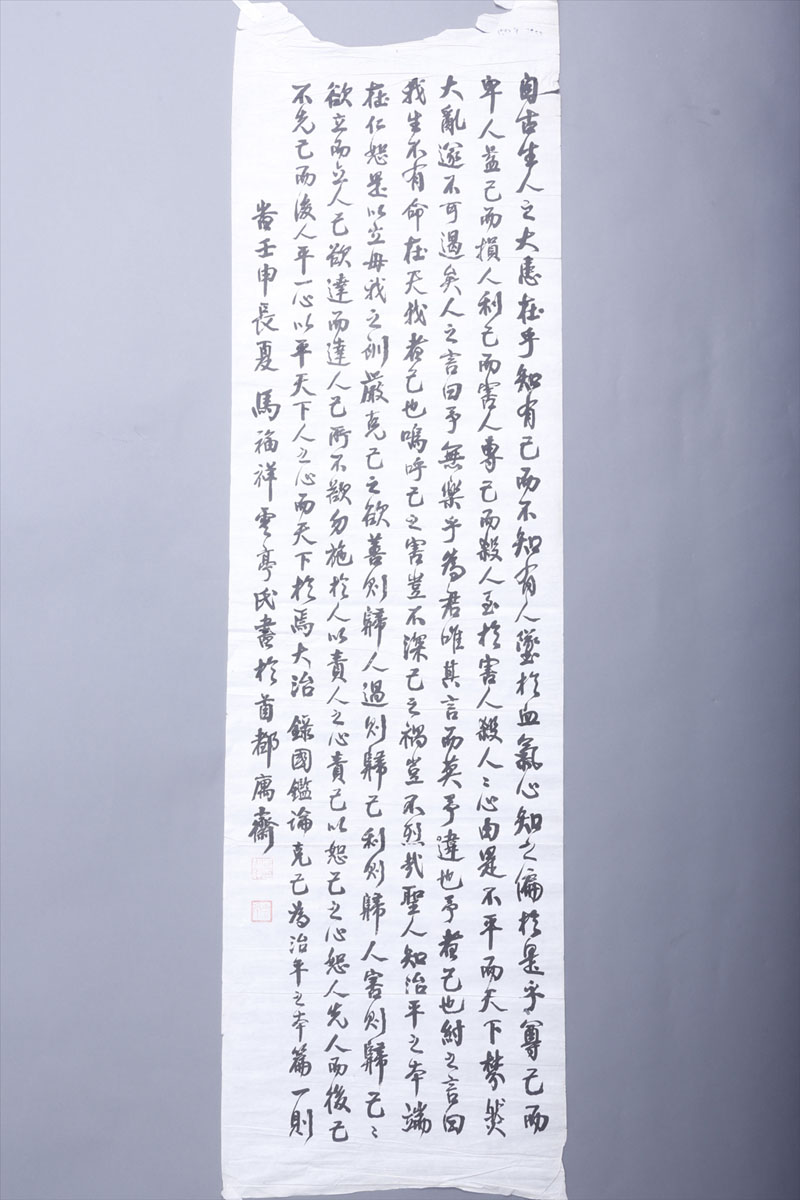 自古生人之大患在乎知有己而不知有人墜於血氣心知之偏於是乎尊己而
卑人益己而損人利己而害人專己而殺人至於害人殺人〻心由是不平而天下棼然
大亂遂不可遏矣人之言曰予無樂乎為君唯其言而莫予違也予者己也紂之言曰
我生不有命在天我者己也嗚呼己之害豈不深己之禍豈不烈哉聖人知治平之本端
在仁恕是以立毋我之訓嚴克己之欲善則歸人過則歸己利則歸人害則歸己〻
欲立而立人己欲達而達人己所不欲勿施於人以責人之心責己以恕己之心恕人先人而後己
不先己而後人平一心以平天下人之心而天下於焉大治 錄國鑑論克己為治平之本篇一則
峕壬申長夏 馬福祥雲亭氏書於首都寓齋